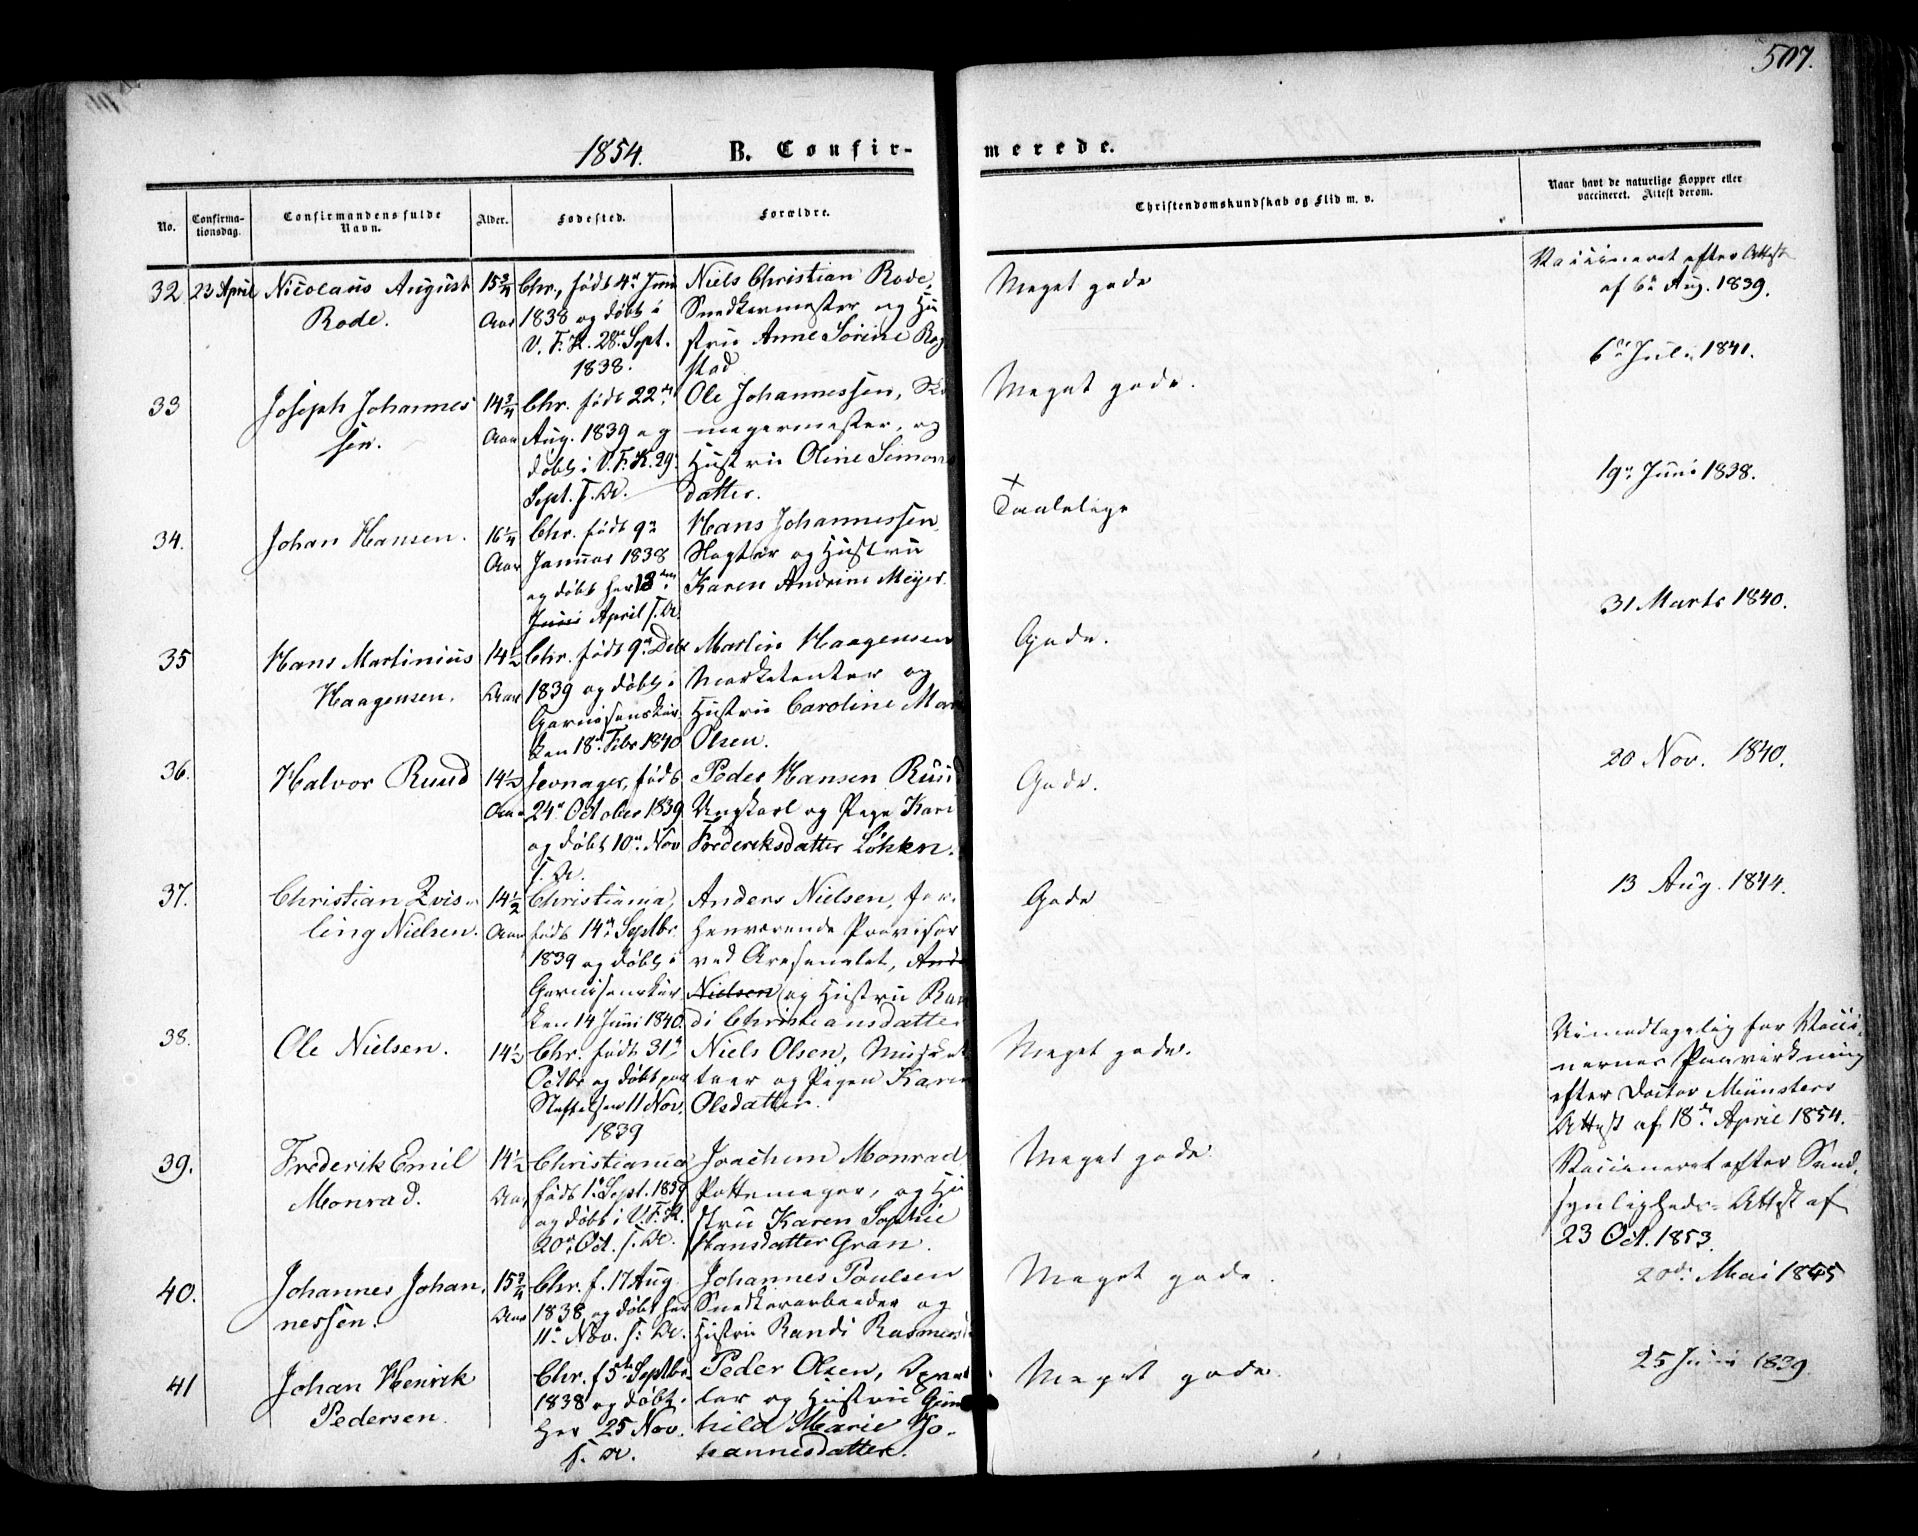 507.
1854. B. Confir-
merede.
No.
Confirma-
tionsdag.
Confirmandens fulde
Navn.
Alder.
Fødested.
Forældre.
Christendomskundskab og Flid m. v.
Naar havt de naturlige Kopper eller
vaccineret. Attest derom.
32
23 April
Nicolaus August
Rode.
15¾
Aar
Chr., født 4de Juni
1838 og døbt i
V. F. K. 28de Sept.
1838.
Niels Christian Rode,
Snedkermester og Hu
stru Anne Sörine Rog
stad
Meget gode
Vaccineret efter Attest
af 6te Aug. 1839.
33
Joseph Johannes
sen.
14¾
Aar
Chr. født 22de
Aug. 1839 og
døbt i V. F. K. 29
Sept. s. A.
Ole Johannessen,
magermester, og
Hustru Oline Simons
datter.
Meget gode.
6te Juli 1841.
34.
Johan Hansen.
16¼
Aar
Chr. født 9de
Januar 1838
og døbt her 13
Juni April s. A.
Hans Johannessen,
Slagter og Hustru
Karen Andrine Meyer.
×
Taalelige
19de Juni 1838.
35
Hans Martinius
Haagensen.
14½
Aar
Chr. født 9de Dec
1839 og døbt i
Garnisonskir
ken 18de Febr 1840
Martin Haagensen
Marketenter og
Hustru Caroline Mar
Olsen.
Gode.
31 Marts 1840.
36.
Halvor Ruud
14½
Aar
Jevnager, født
24de October 1839
og døbt 10de Nov
s. A.
Peder Hansen Ruud
Ungkarl og Pige Kari
Frederiksdatter Löhken.
Gode.
20 Nov. 1840.
37.
Christian Qvis-
ling Nielsen.
14½
Aar
Christiania,
født 14de Septbr.
1839 og døbt i
Garnisonskir
ken 14 Juni 1840.
Anders Nielsen, for-
henværende Provisor
ved Arsenalet, Ande
Nielsen og Hustru Ran
di Christiansdatter
Gode
13 Aug. 1844.
38.
Ole Nielsen.
14½
Chr. født 31te
Octbr og døbt paa
Stiftelsen 11 Nov.
1839
Niels Olsen, Musket
teer og Pigen Karen
Olsdatter.
Meget gode.
Uimodtagelig for Vacci-
nernes Paavirkning
efter Doctor Münsters
Attest af 18de April 1854.
39.
Frederik Emil
Monrad.
14½
Aar
Christiania
født 1te Sept. 1839
og døbt i V. F. K.
20de Oct. s. A.
Joachim Monrad
Pottemager, og Hu
stru Karen Sophie
Hansdatter Gran.
Meget gode
Vaccineret efter Sand-
synligheds-Attest af
23 Oct. 1853.
40.
Johannes Johan
nessen.
15¾
Aar
Chr. f. 17 Aug
1838 og døbt her
11te Nov. s. A.
Johannes Poulsen
Snedkerarbeider og
Hustru Randi Rasmusd
Meget gode.
20de Mai 1845
41
Johan Henrik
Pedersen.
Chr. f 5te Septbr.
1838 og døbt
her 25 Nov.
s. A.
Peder Olsen,
ler og Hustru Gun
hild Marie Jo-
hannesdatter.
Meget gode.
25 Juni 1839.